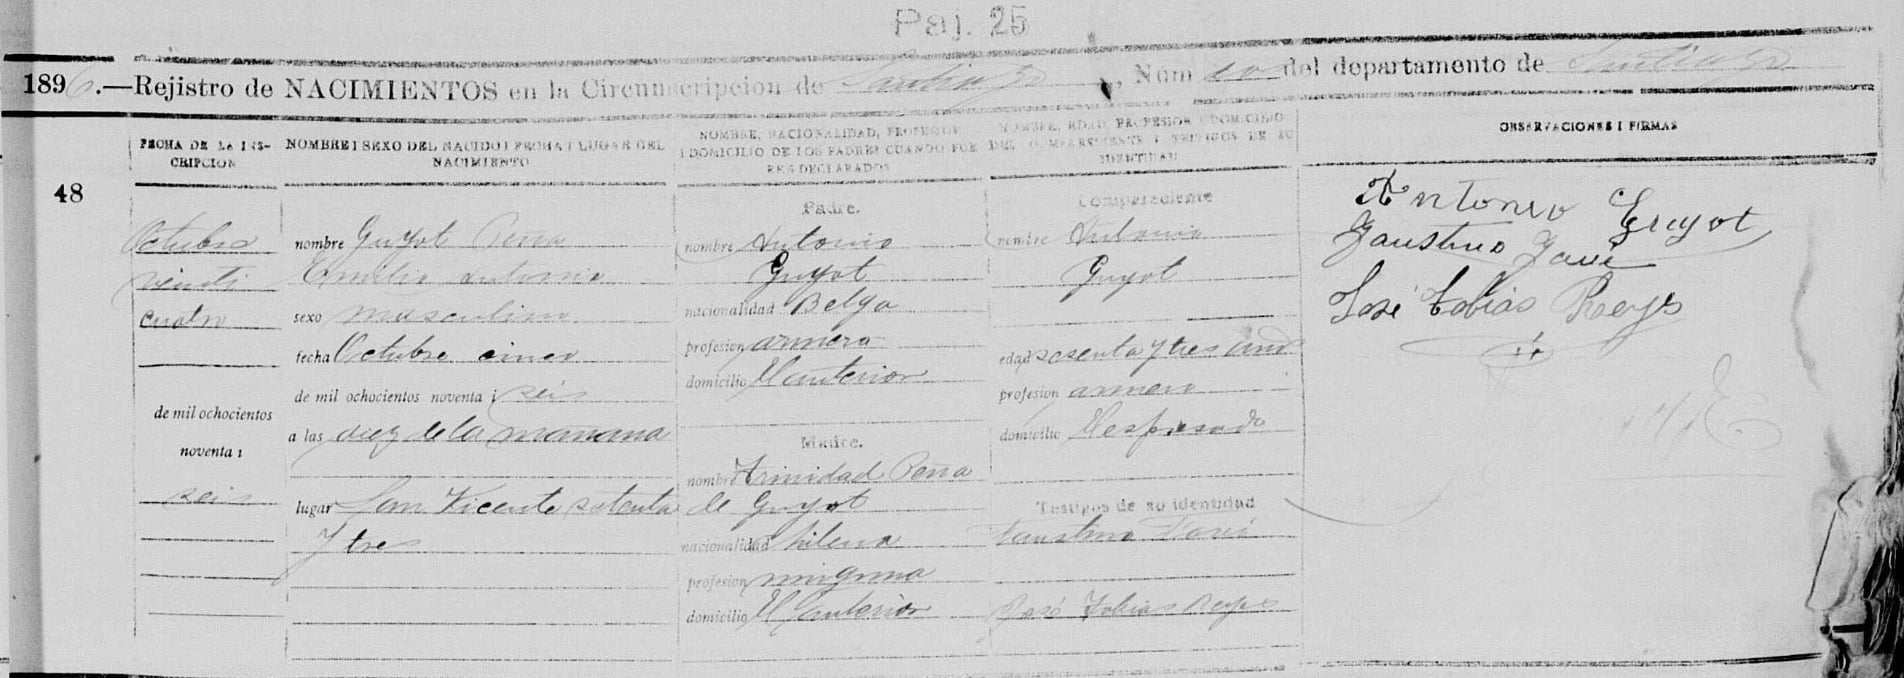 Paj. 25
1896.—Rejistro de NACIMIENTOS en la Circunscripcion de Santiago, Núm 10 del departamento de Santiago
FECHA DE LA INS-
CRIPCION
NOMBRE I SEXO DEL NACIDO I FECHA I LUGAR DEL
NACIMIENTO
NOMBRE, NACIONALIDAD, PROFESION
I DOMICILIO DE LOS PADRES CUANDO FUE
RES DECLARADOS
NOMBRE, EDAD, PROFESION I DOMICILIO
DEL COMPARECIENTE I TESTIGOS DE SU
IDENTIDAD
OBSERVACIONES I FIRMAS
48
Octubre
veinti
cuatro
de mil ochocientos
noventa i
seis
nombre Guyot Peña
Emilio Antonio
sexo masculino
fecha Octubre cinco
de mil ochocientos noventa i seis
a las diez de la mañana
lugar San Vicente setenta
y tres
Padre.
nombre Antonio
Guyot
nacionalidad Belga
profesion armero
domicilio El anterior
Madre.
nombre Trinidad Peña
de Guyot
nacionalidad Chilena
profesion ninguna
domicilio El anterior
Compareciente
nombre Antonio
Guyot
edad sesenta y tres años
profesion armero
domicilio El espresado
Testigos de su identidad
Faustino
José Tobias Reyes
Antonio Guyot
Faustino
José Tobias Reyes